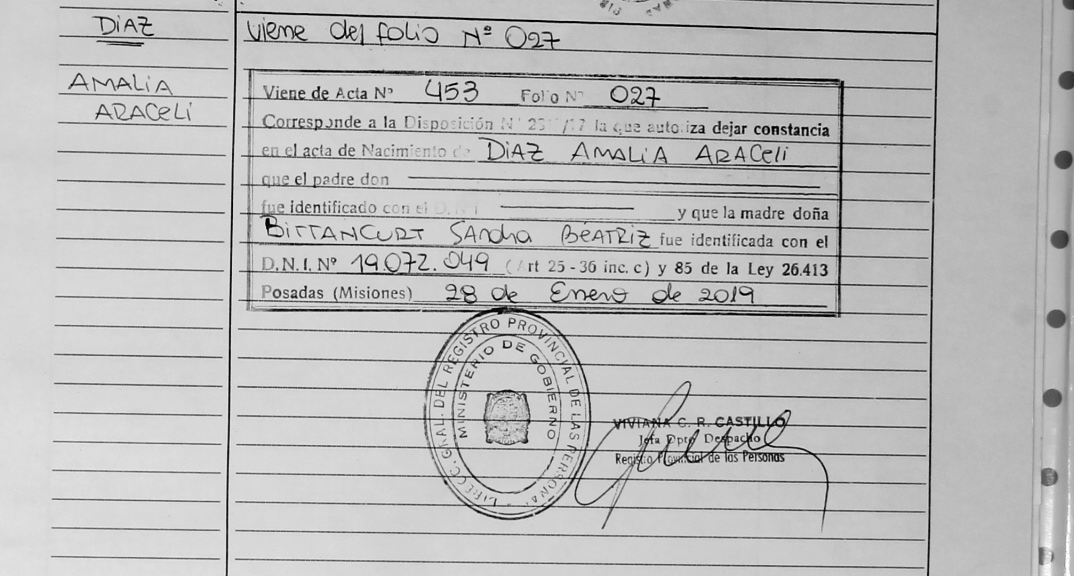 DiAZ
Viene del folio Nº 027
AMALiA
ARACeLi
Viene de Acta Nº 453 Folio Nº 027
Corresponde a la Disposición Nº /17 la que autoriza dejar constancia
en el acta de Nacimiento de DiAZ AMALiA ARACeli
que el padre don
fue identificado con el D.N.I. y que la madre doña
BiTTANCURT SAndra BEATRiZ fue identificada con el
D.N.I. Nº 19.072.049 (Art 25 - 36 inc. c) y 85 de la Ley 26.413
Posadas (Misiones) 28 de Enero de 2019
DIRECC. GRAL. DEL REGISTRO PROVINCIAL DE LAS PERSONAS
MINISTERIO DE GOBIERNO
VIVIANA C. R. CASTILLO
Jefa Dpto Despacho
Registro Provincial de las Personas